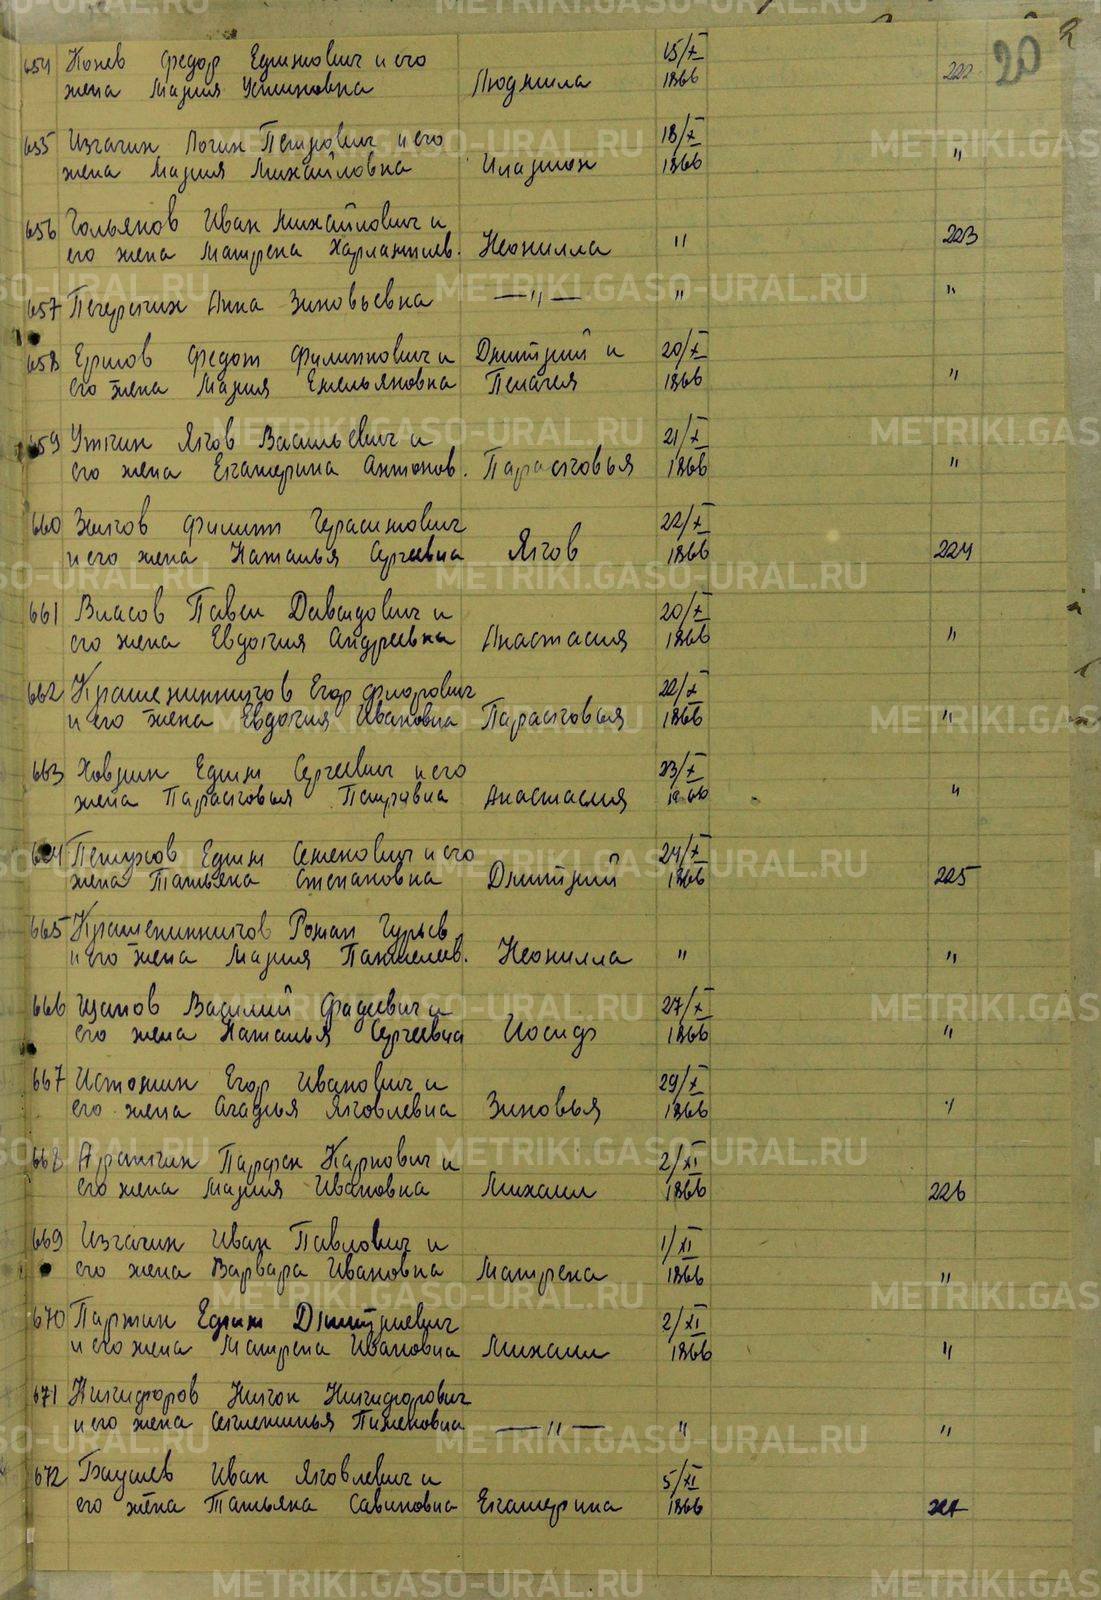 20
654 Конев Федор Ефимович и его 15/X
жена Мария Устиновна Людмила 1866 222
655 Изгагин Логин Петрович и его 18/X
жена Мария Михайловна Иларион 1866 "
656 Гольянов Иван Михайлович и
его жена Матрена Харлампиев. Неонилла " 223
657 Анна Зиновьевна —"— " "
658 Ершов Федот Филиппович и Дмитрий и 20/X
его жена Мария Емельяновна Пелагея 1866 "
659 Уткин Яков Васильевич и 21/X
его жена Екатерина Антонов. Парасковья 1866 "
660 Зыков Филипп Герасимович 22/X
и его жена Наталья Сергеевна Яков 1866 224
661 Власов Павел Давыдович и 20/X
его жена Евдокия Андреевна Анастасия 1866 "
662 Крашенинников Егор Флорович 22/X
и его жена Евдокия Ивановна Парасковья 1866 "
663 Ховрин Ефим Сергеевич и его 23/X
жена Парасковья Петровна Анастасия 1866 "
664 Петухов Ефим Семенович и его 24/X
жена Татьяна Степановна Дмитрий 1866 225
665 Крашенинников Роман Гурьев
и его жена Мария Пантелеев. Неонилла " "
666 Щапов Василий Фадеевич и 27/X
его жена Наталья Сергеевна Иосиф 1866 "
667 Истомин Егор Иванович и 29/X
его жена Агафья Яковлевна Зиновья 1866 "
668 Парфен Карпович и 2/XI
его жена Мария Ивановна Михаил 1866 226
669 Изгагин Иван Павлович и 1/XI
его жена Варвара Ивановна Матрена 1866 "
670 Паршин Ефим Дмитриевич 2/XI
и его жена Матрена Ивановна Михаил 1866 "
671 Никифоров Никон Никифорович
и его жена Пименовна —"— " "
672 Иван Яковлевич и 5/XI
его жена Татьяна Савиновна Екатерина 1866 227
METRIKI.GASO-URAL.RU